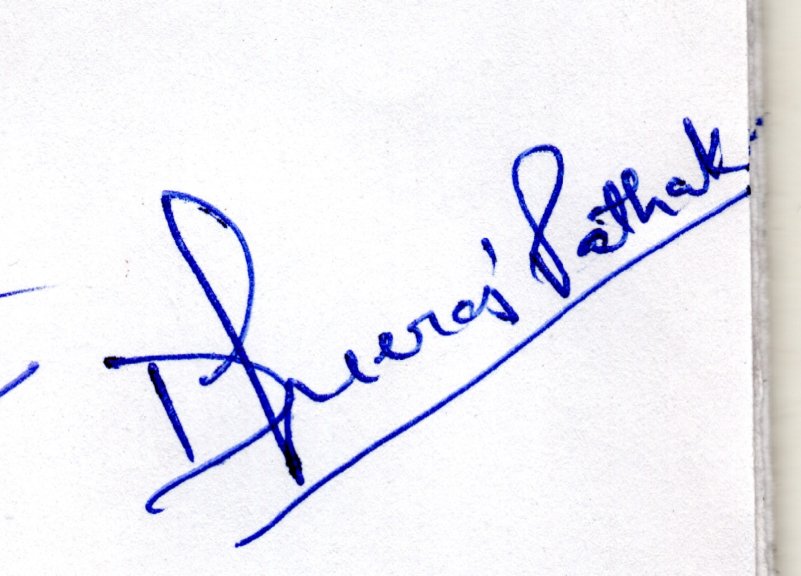 Dheeraj Pathak